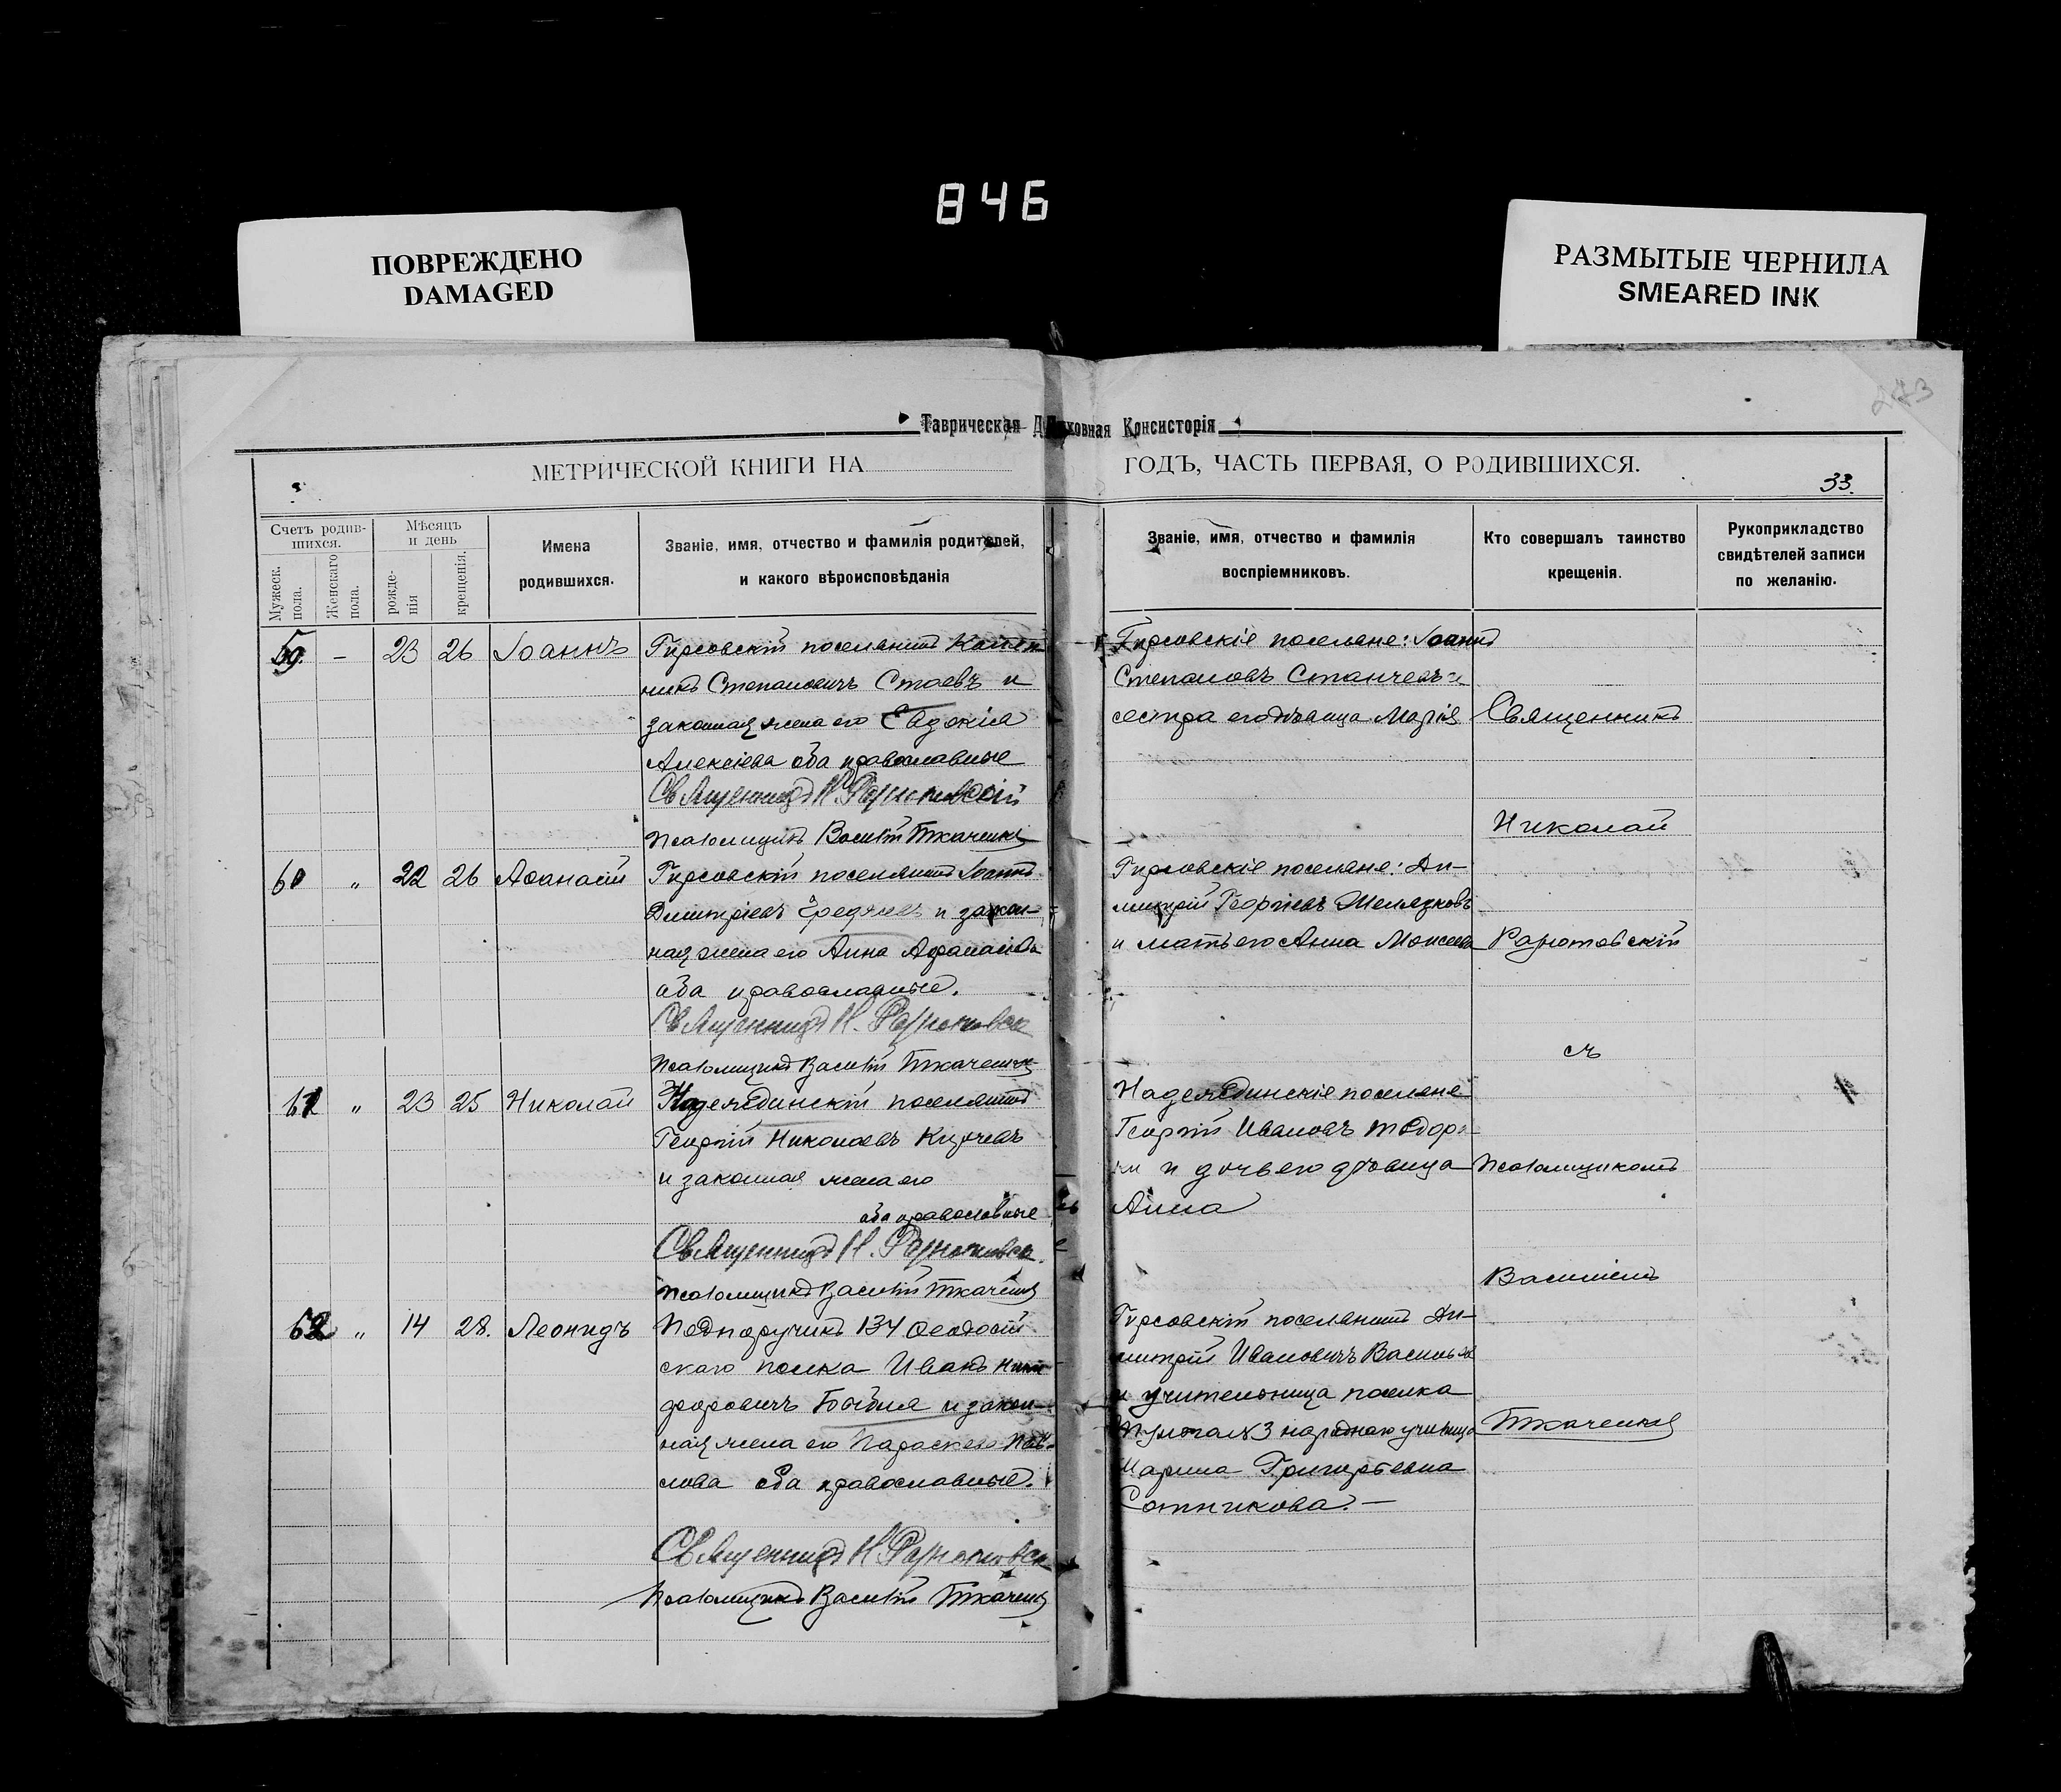 846
ПОВРЕЖДЕНО
DAMAGED
РАЗМЫТЫЕ ЧЕРНИЛА
SMEARED INK
Таврическая Духовная Консисторія
МЕТРИЧЕСКОЙ КНИГИ НА ГОДЪ, ЧАСТЬ ПЕРВАЯ, О РОДИВШИХСЯ.
33.
Счетъ родив-
шихся.
Мужеск.
пола.
Женскаго
пола.
Мѣсяцъ
и день
рожде-
нія
крещенія.
Имена
родившихся.
Званіе, имя, отчество и фамилія родителей,
и какого вѣроисповѣданія
Званіе, имя, отчество и фамилія
воспріемниковъ.
Кто совершалъ таинство
крещенія.
Рукоприкладство
свидѣтелей записи
по желанію.
59. – 23 26 Іоаннъ
Гирсовскій поселянинъ
Степановичъ Стоевъ и
законная жена его Евдокія
Алексіева оба православные
Священникъ Н.
Псаломщикъ Василій Ткаченко
Гирсовскіе поселяне: Іоаннъ
Степановъ Станчевъ и
сестра его дѣвица Марія
Священникъ
Николай
60 „ 22 26 Аѳанасій
Гирсовскій поселянинъ Іоаннъ
Димитріевъ и закон-
ная жена его Анна
оба православные.
Священникъ Н.
Псаломщикъ Василій Ткаченко
Гирсовскіе поселяне: Ди-
митрій Георгіевъ Желязковъ
и мать его Анна Моисеева
съ
61 „ 23 25 Николай
поселянинъ
Георгій Николаевъ
и законная жена его
оба православные
Священникъ Н.
Псаломщикъ Василій Ткаченко
поселяне
Георгій Ивановъ
и дочь его дѣвица
Анна
Псаломщикомъ
Василіемъ
62 „ 14 28. Леонидъ
Подпоручикъ 134 Ѳеодосій
скаго полка Иванъ Ники
форовичъ и закон-
ная жена его Параскева Пав-
лова оба православные.
Священникъ Н.
Псаломщикъ Василій Ткаченко
Гирсовскій поселянинъ Ди-
митрій Ивановичъ
и учительница поселка
3 народнаго училища
Марина Григорьевна
Сотникова. –
Ткаченко